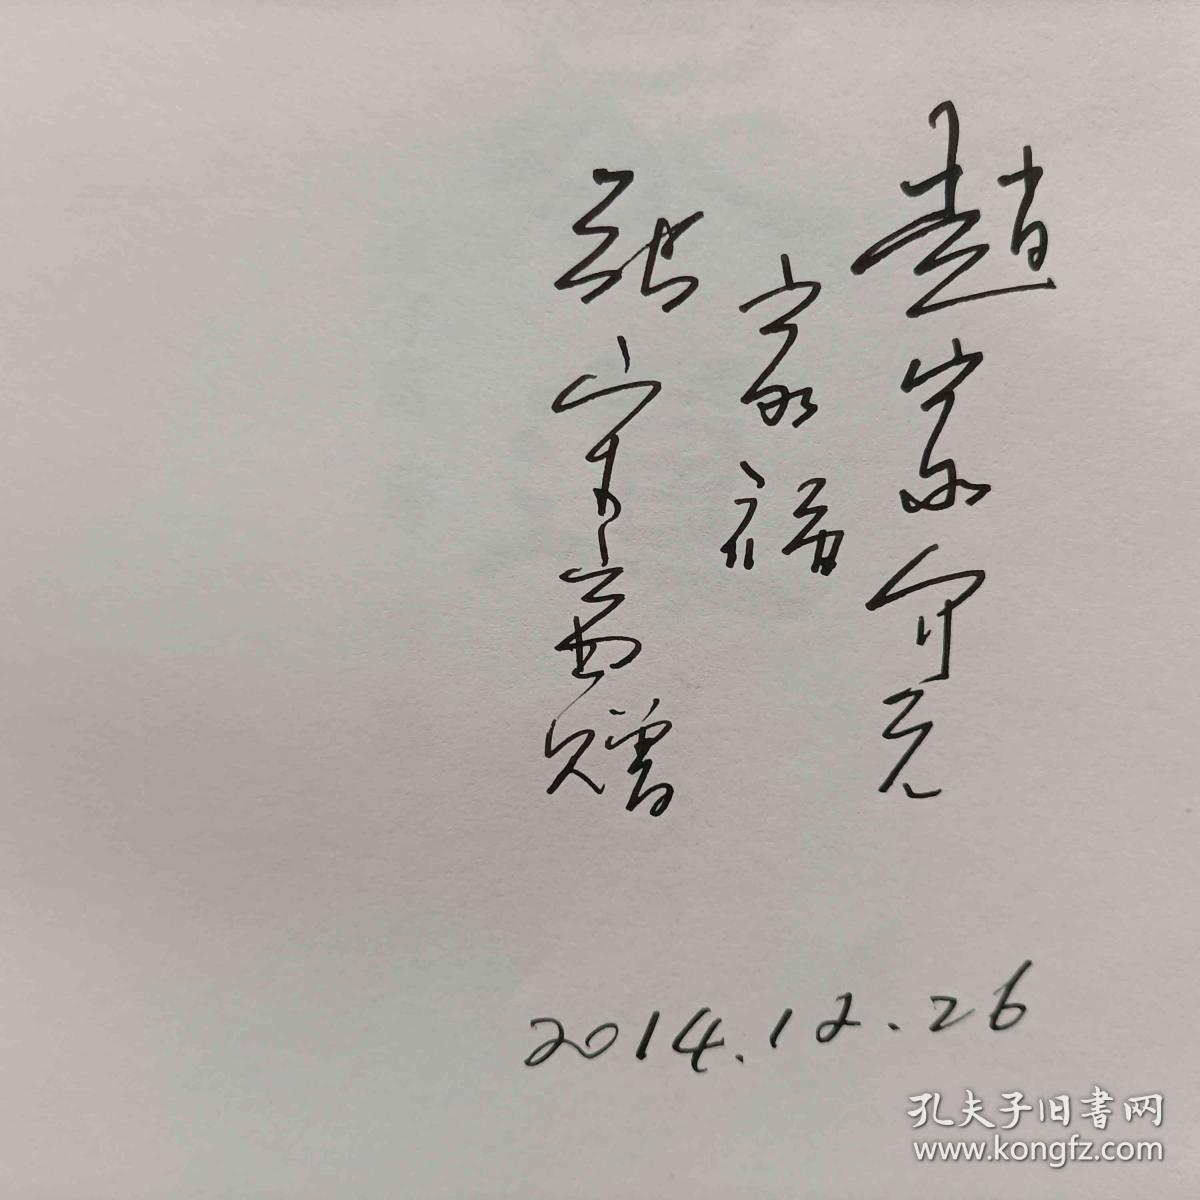 趙家介元
家福
张 赠
2014.12.26
孔夫子旧書网
www.kongfz.com